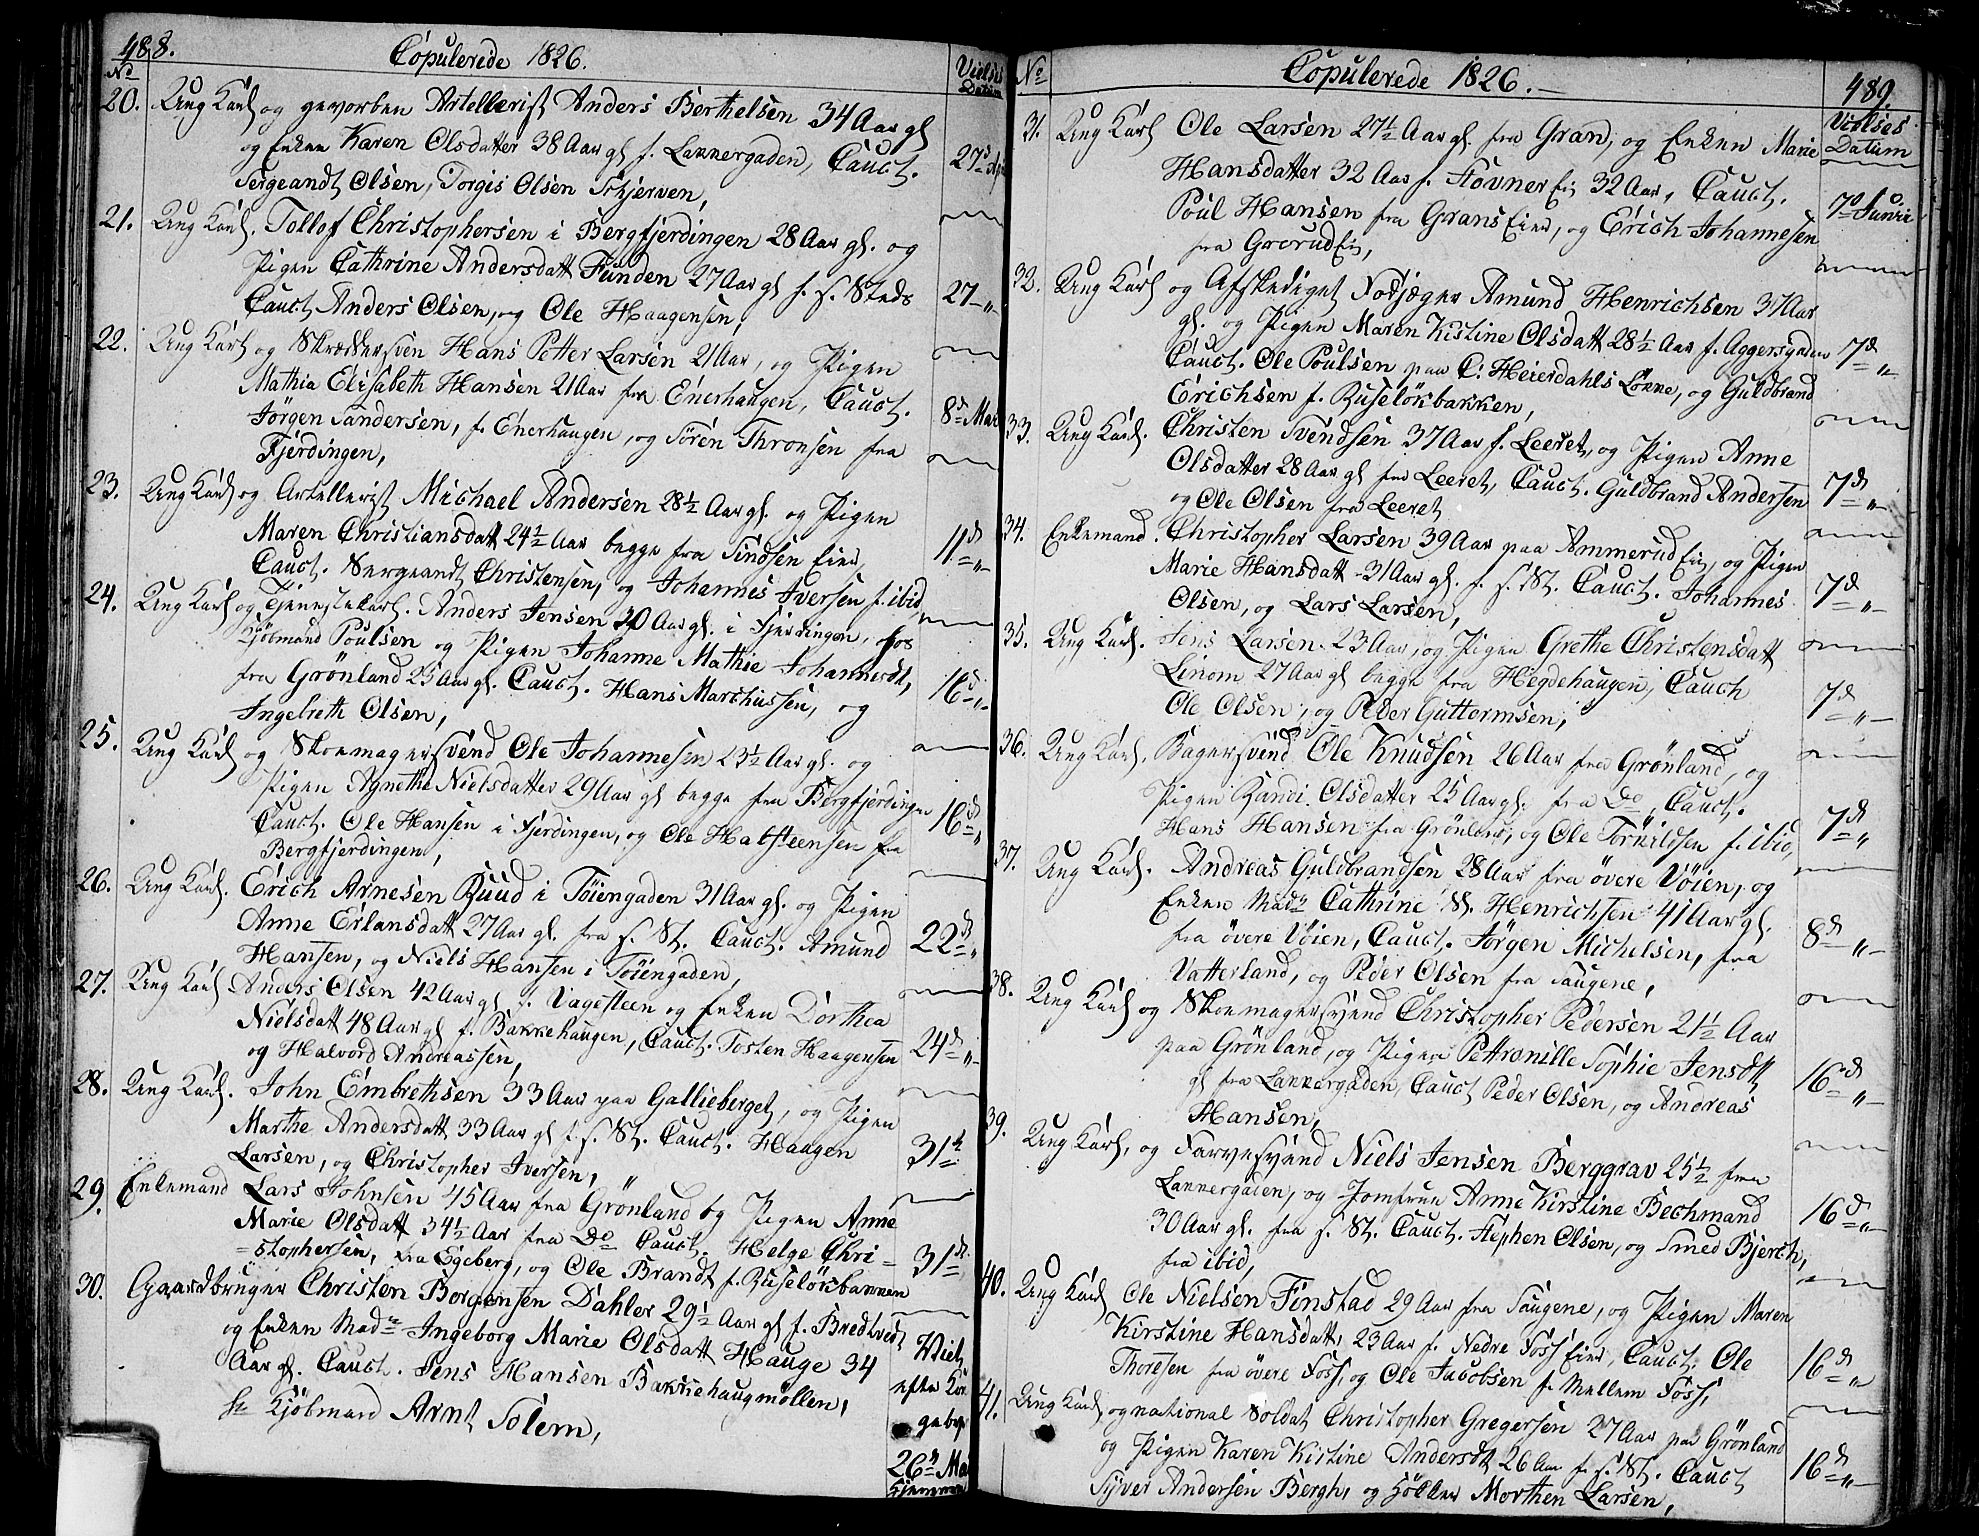 488.
Copulerede 1826.
No
Vielses Datum
20. Ung Karl og gevorben Artellerist Anders Berthelsen 34 Aar gl
og Enken Karen Olsdatter 38 Aar gl. f. Lannergaden, Cauct.
Sergeandt Olsen, Torgis Olsen Schjerven,
27d Apr
21. Ung Karl. Tollof Christophersen i Bergfjerdingen 28 Aar gl. og
Pigen Cathrine Andersdatt Funden 27 Aar gl f. s. Steds
Cauct Anders Olsen, og Ole Haagensen,
27 – „ –
22. Ung Karl og Skræddersven Hans Petter Larsen 21 Aar, og Pigen
Mathia Elisabeth Hansen 21 Aar fra Enerhaugen, Cauct.
Jörgen Sandersen, f. Enerhaugen, og Sören Thronsen fra
Fjerdingen,
8d Mai
23. Ung Karl og Artellerist Michael Andersen 28½ Aar gl. og Pigen
Maren Christiansdatt 24½ Aar begge fra Tindsen Eier,
Cauct. Sergeandt Christensen, og Johannes Iversen f. ibid
11d – „ –
24. Ung Karl og Tjennestekarl. Anders Jensen 30 Aar gl. i Fjerdingen, hos
Kjöbmand Poulsen og Pigen Johanne Mathie Johannesdt,
fra Grönland 25 Aar gl. Cauct. Hans Marthissen, og
Ingebreth Olsen,
16d – „ –
25. Ung Karl og Skoemagersvend Ole Johannesen 23½ Aar gl. og
Pigen Agnethe Nielsdatter 29 Aar gl begge fra Bergfjerdingen
Cauct. Ole Hansen i Fjerdingen, og Ole Halsteensen fra
Bergfjerdingen,
16d „
26. Ung Karl. Erich Arnesen Ruud i Töiengaden 31 Aar gl. og Pigen
Anne Erlansdatt 27 Aar gl. fra s. St. Cauct. Amund
Hansen, og Niels Hansen i Töiengaden,
22d „
27. Ung Karl Anders Olsen 42 Aar gl f. Vagesteen og Enken Dorthea
Nielsdatt 48 Aar gl f. Bakkehaugen, Cauct. Tosten Haagensen
og Halvord Andreassen,
24d „ –
28. Ung Karl. John Embrethsen 33 Aar paa Gallieberget, og Pigen
Marthe Andersdatt 33 Aar gl f. s. St. Cauct. Haagen
Larsen, og Christopher Iversen,
31d
29. Enkemand Lars Johnsen 45 Aar fra Grönland og Pigen Anne
Marie Olsdatt 34½ Aar fra Do Cauct. Helge Chri-
=stophersen, fra Egeberg, og Ole Brandt f. Ruselöksbakken
31d
30. Gaardbruger Christen Borgensen Dahler 29½ Aar gl f. Bredtvedt
og Enken Made Ingeborg Marie Olsdatt Hauge 34
Aar gl. Cauct. Jens Hansen Bakkehaugmöllen,
hr Kjöbmand Arnt Solem,
Viet
efter Kon
gebrev
26d Mai
hjemme
No
Copulerede 1826. –
489.
Vielses Datum
31. Ung Karl Ole Larsen 27½ Aar gl. fra Gran, og Enken Marie
Hansdatter 32 Aar f. Stovner Ei 32 Aar, Cauct.
Poul Hansen fra Grans Eier, og Erich Johannesen
fra Grorud Ei,
7d Junii
32. Ung Karl og Afskediget Nordjæger Amund Henrichsen 37 Aar
gl. og Pigen Maren Kistine Olsdatt 28½ Aar f. Aggersgaden
Cauct. Ole Poulsen paa C: Heierdahls Lökke, og Guldbrand
Erichsen f. Ruselökbakken,
7d „ –
33. Ung Karl. Christen Svendsen 37 Aar f. Leeret, og Pigen Anne
Olsdatter 28 Aar gl fra Leeret, Cauct. Guldbrand Andersen
og Ole Olsen fra Leeret
7d „ –
34. Enkemand. Christopher Larsen 39 Aar paa Ammerud Ei, og Pigen
Marie Hansdatt 31 Aar gl. f. s. St. Cauct. Johannes
Olsen, og Lars Larsen,
7d „ –
35. Ung Karl. Jens Larsen 23 Aar, og Pigen Grethe Christensdatt
Linom 27 Aar gl begge fra Hegdehaugen, Cauct
Ole Olsen, og Peder Guttormsen,
7d „ –
36. Ung Karl. Bagersvend Ole Knudsen 26 Aar fra Grönland, og
Pigen Randi Olsdatter 25 Aar gl. fra Do, Cauct.
Hans Hansen fra Grönland, og Ole Tornildsen f. ibid,
7d „
37. Ung Karl. Andreas Guldbrandsen 28 Aar fra övere Vöien, og
Enken Made Cathrine S. Henrichsen 41 Aar gl.
fra övere Vöien, Cauct. Jörgen Michelsen, fra
Vatterland, og Peder Olsen fra Saugene,
8d „ –
38. Ung Karl og Skoemagersvend Christopher Pedersen 21½ Aar
paa Grönland, og Pigen Pettronille Sophie Jensdtt
gl fra Lannergaden, Cauct Peder Olsen, og Andreas
Hansen,
16d „ –
39. Ung Karl, og Farvesvend Niels Jensen Berggrav 25½ fra
Lannergaden, og Jomfrue Anne Kirstine Bechmand
30 Aar gl. fra s. St. Cauct. Stephen Olsen, og Smed Bjerch,
fra ibid,
16d „ –
40. Ung Karl Ole Nielsen Finstad 29 Aar fra Saugene, og Pigen Maren
Kirstine Hansdatt, 23 Aar f. Nedre Foss Eier, Cauct. Ole
Thoresen fra övere Foss, og Ole Jacobsen f. Mellem Foss,
16d „
41. Ung Karl, og national Soldat Christopher Gregersen 37 Aar paa Grönland
og Pigen Karen Kistine Andersdt 26 Aar f. s. St. Cauct
Syver Andersen Bergh, og Höker Morthen Larsen,
16d „ –